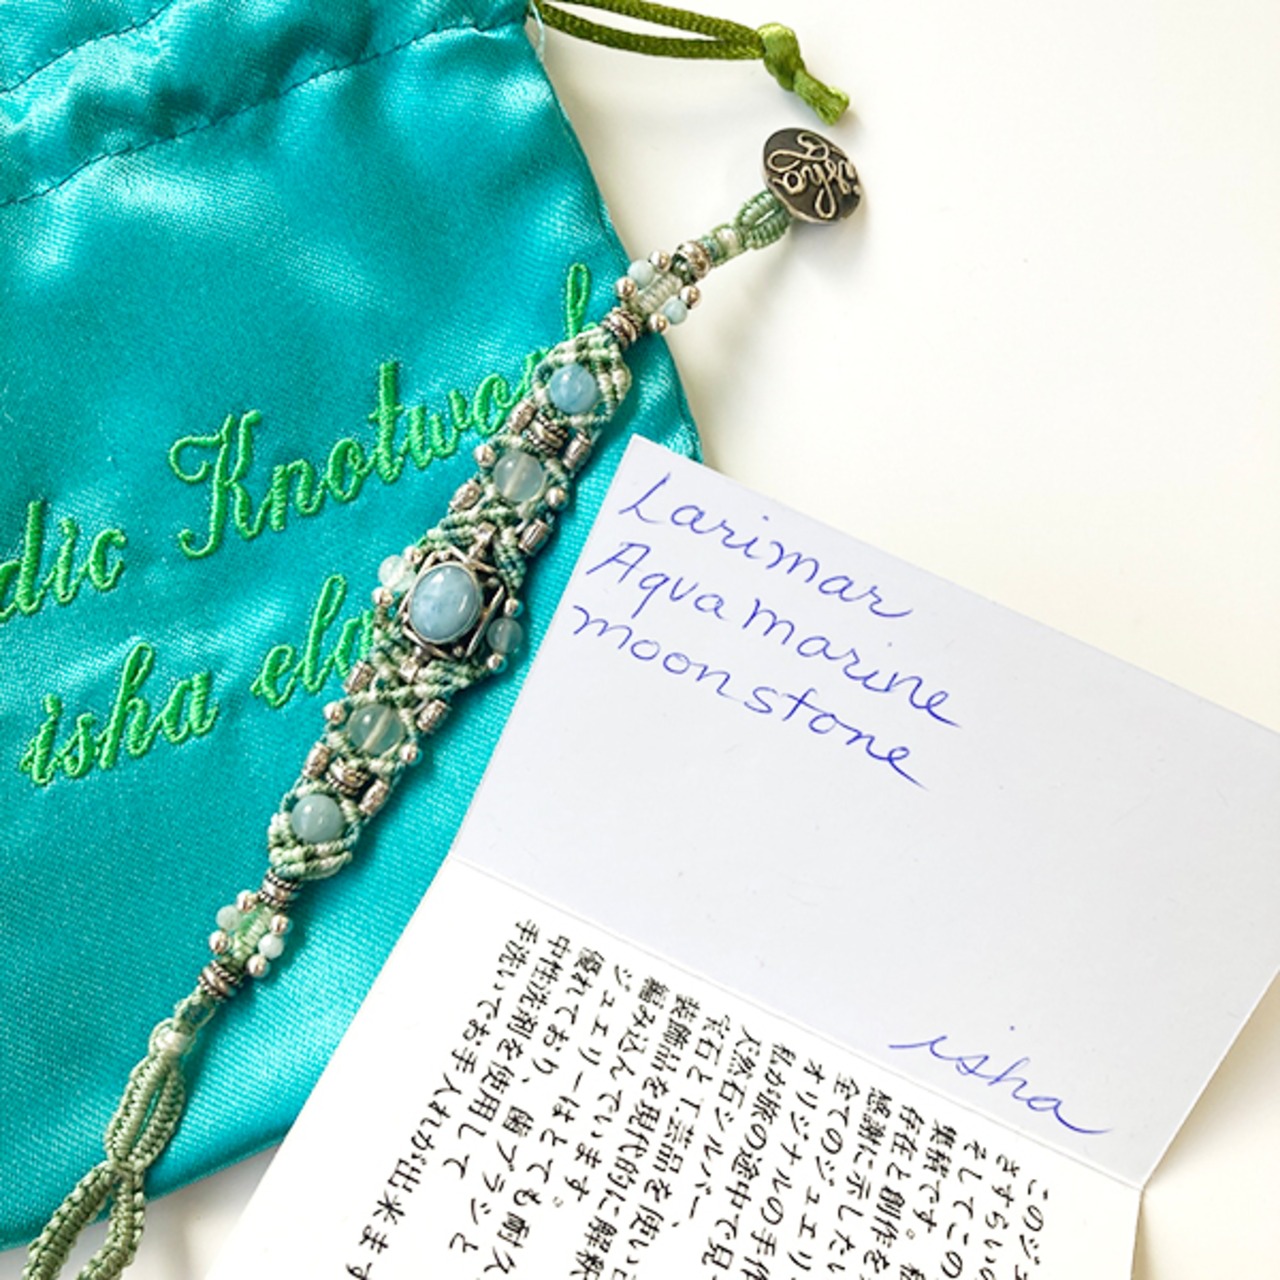 dic Knotwork
isha ela
isha
Larimar
Aquamarine
moonstone
isha
このジュ
さすらいの
そしてこの
奥積です。私
存在と創作を
感謝に示したい
全てのジュエリ
オリジナルの手作
私が旅の途中で見
天然石シルバー
宝石と工芸品を使い
装飾品を現代的に解釈
編み込んでいます。
ジュエリーはとても耐久
優れており、歯ブラシと
中性洗剤を使用して
手洗いでお手入れが出来ます